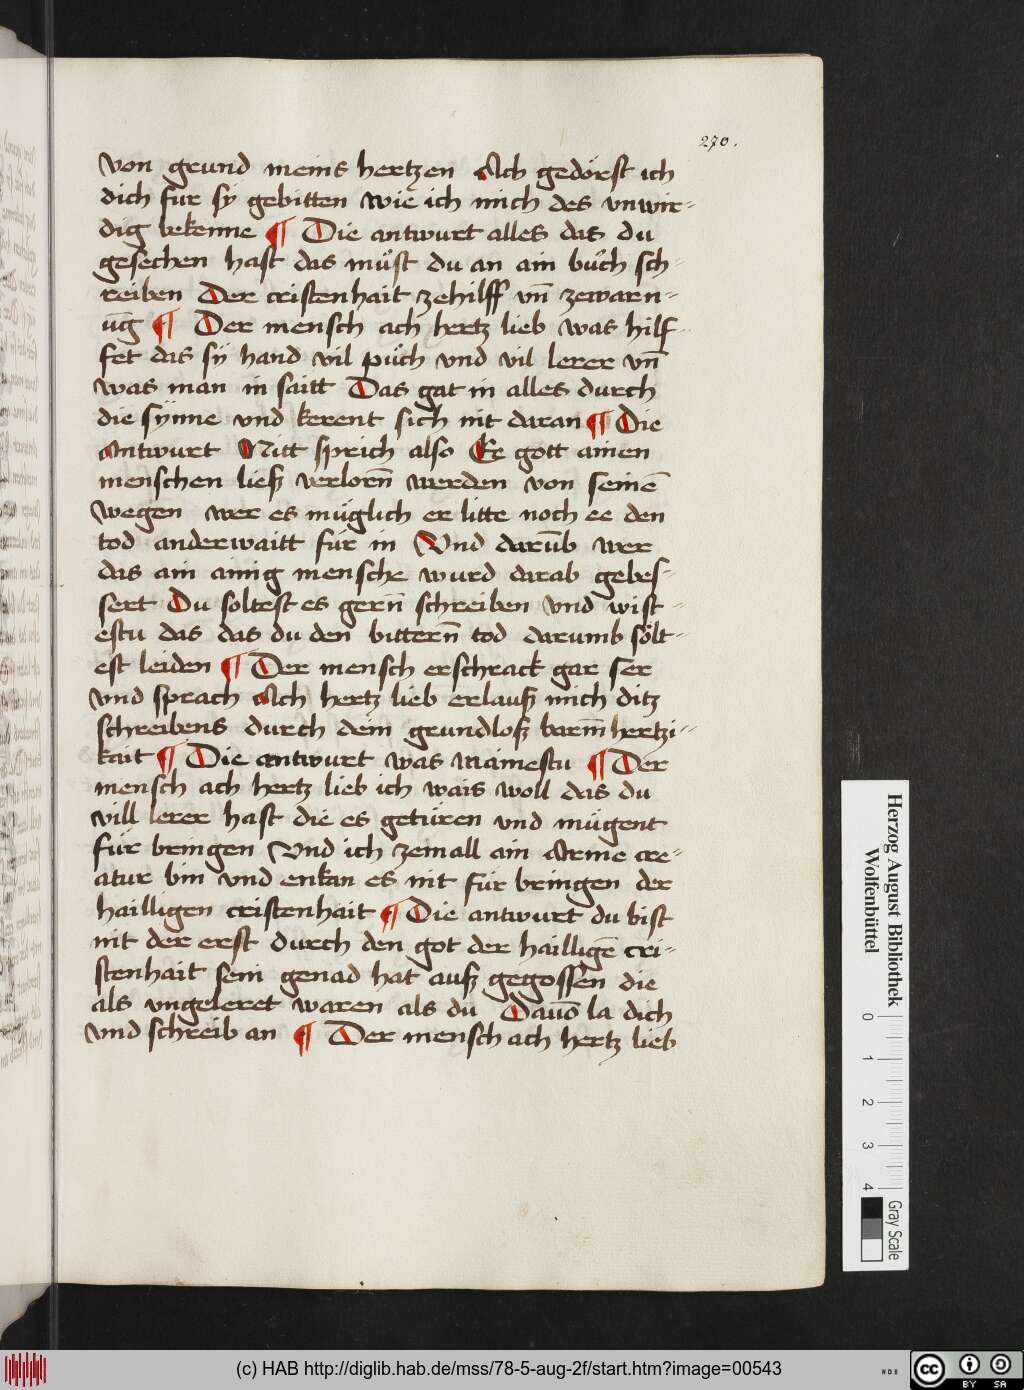 270.
von grund meins hertzen Ach gedörst ich
dich fur sy gebitten wie ich mich des vnwir-
dig bekenne ¶ Die antwurt alles das du
gesechen hast das müst du an ain bůch sch-
reiben Der cristenhait zehilff vn̄ zewarn-
ūg ¶ Der mensch ach hertz lieb was hilf-
fet das sy hand vil půch vnd vil lerer vn̄
was man in saitt Das gat in alles durch
die synne vnd kerent sich nit daran ¶ Die
Antwurt Nitt sprich also Ee gott ainen
menschen ließ verlorn̄ werden von seinē
wegen wer es müglich er litte noch ee den
tod anderwaitt für in Vnd darūb wer
das ain ainig mensche wurd darab gebes-
sert Du soltest es gern̄ schreiben vnd wist-
estu das das du den bittern̄ tod darumb sölt-
est leiden ¶ Der mensch erschrack gar ser
vnd sprach Ach hertz lieb erlauß mich ditz
schreibens durch dein grundloß barm̄hertzi-
kait ¶ Die antwurt was mainestu ¶ Der
mensch ach hertz lieb ich wais woll das du
vill lerer hast die es getüren vnd mügent
für bringen Vnd ich zemall ain Arme cre-
atur bin vnd enkan es nit für bringen der
hailligen cristenhait ¶ Die antwurt du bist
nit der erst durch den got der hailligē cri-
stenhait sein genad hat auß gegossen die
als vngeleret waren als du Dauō la dich
vnd schreib an ¶ Der mensch ach hertz lieb
Herzog August Bibliothek
Wolfenbüttel
0 1 2 3 4
Gray Scale
(c) HAB http://diglib.hab.de/mss/78-5-aug-2f/start.htm?image=00543
cc BY SA